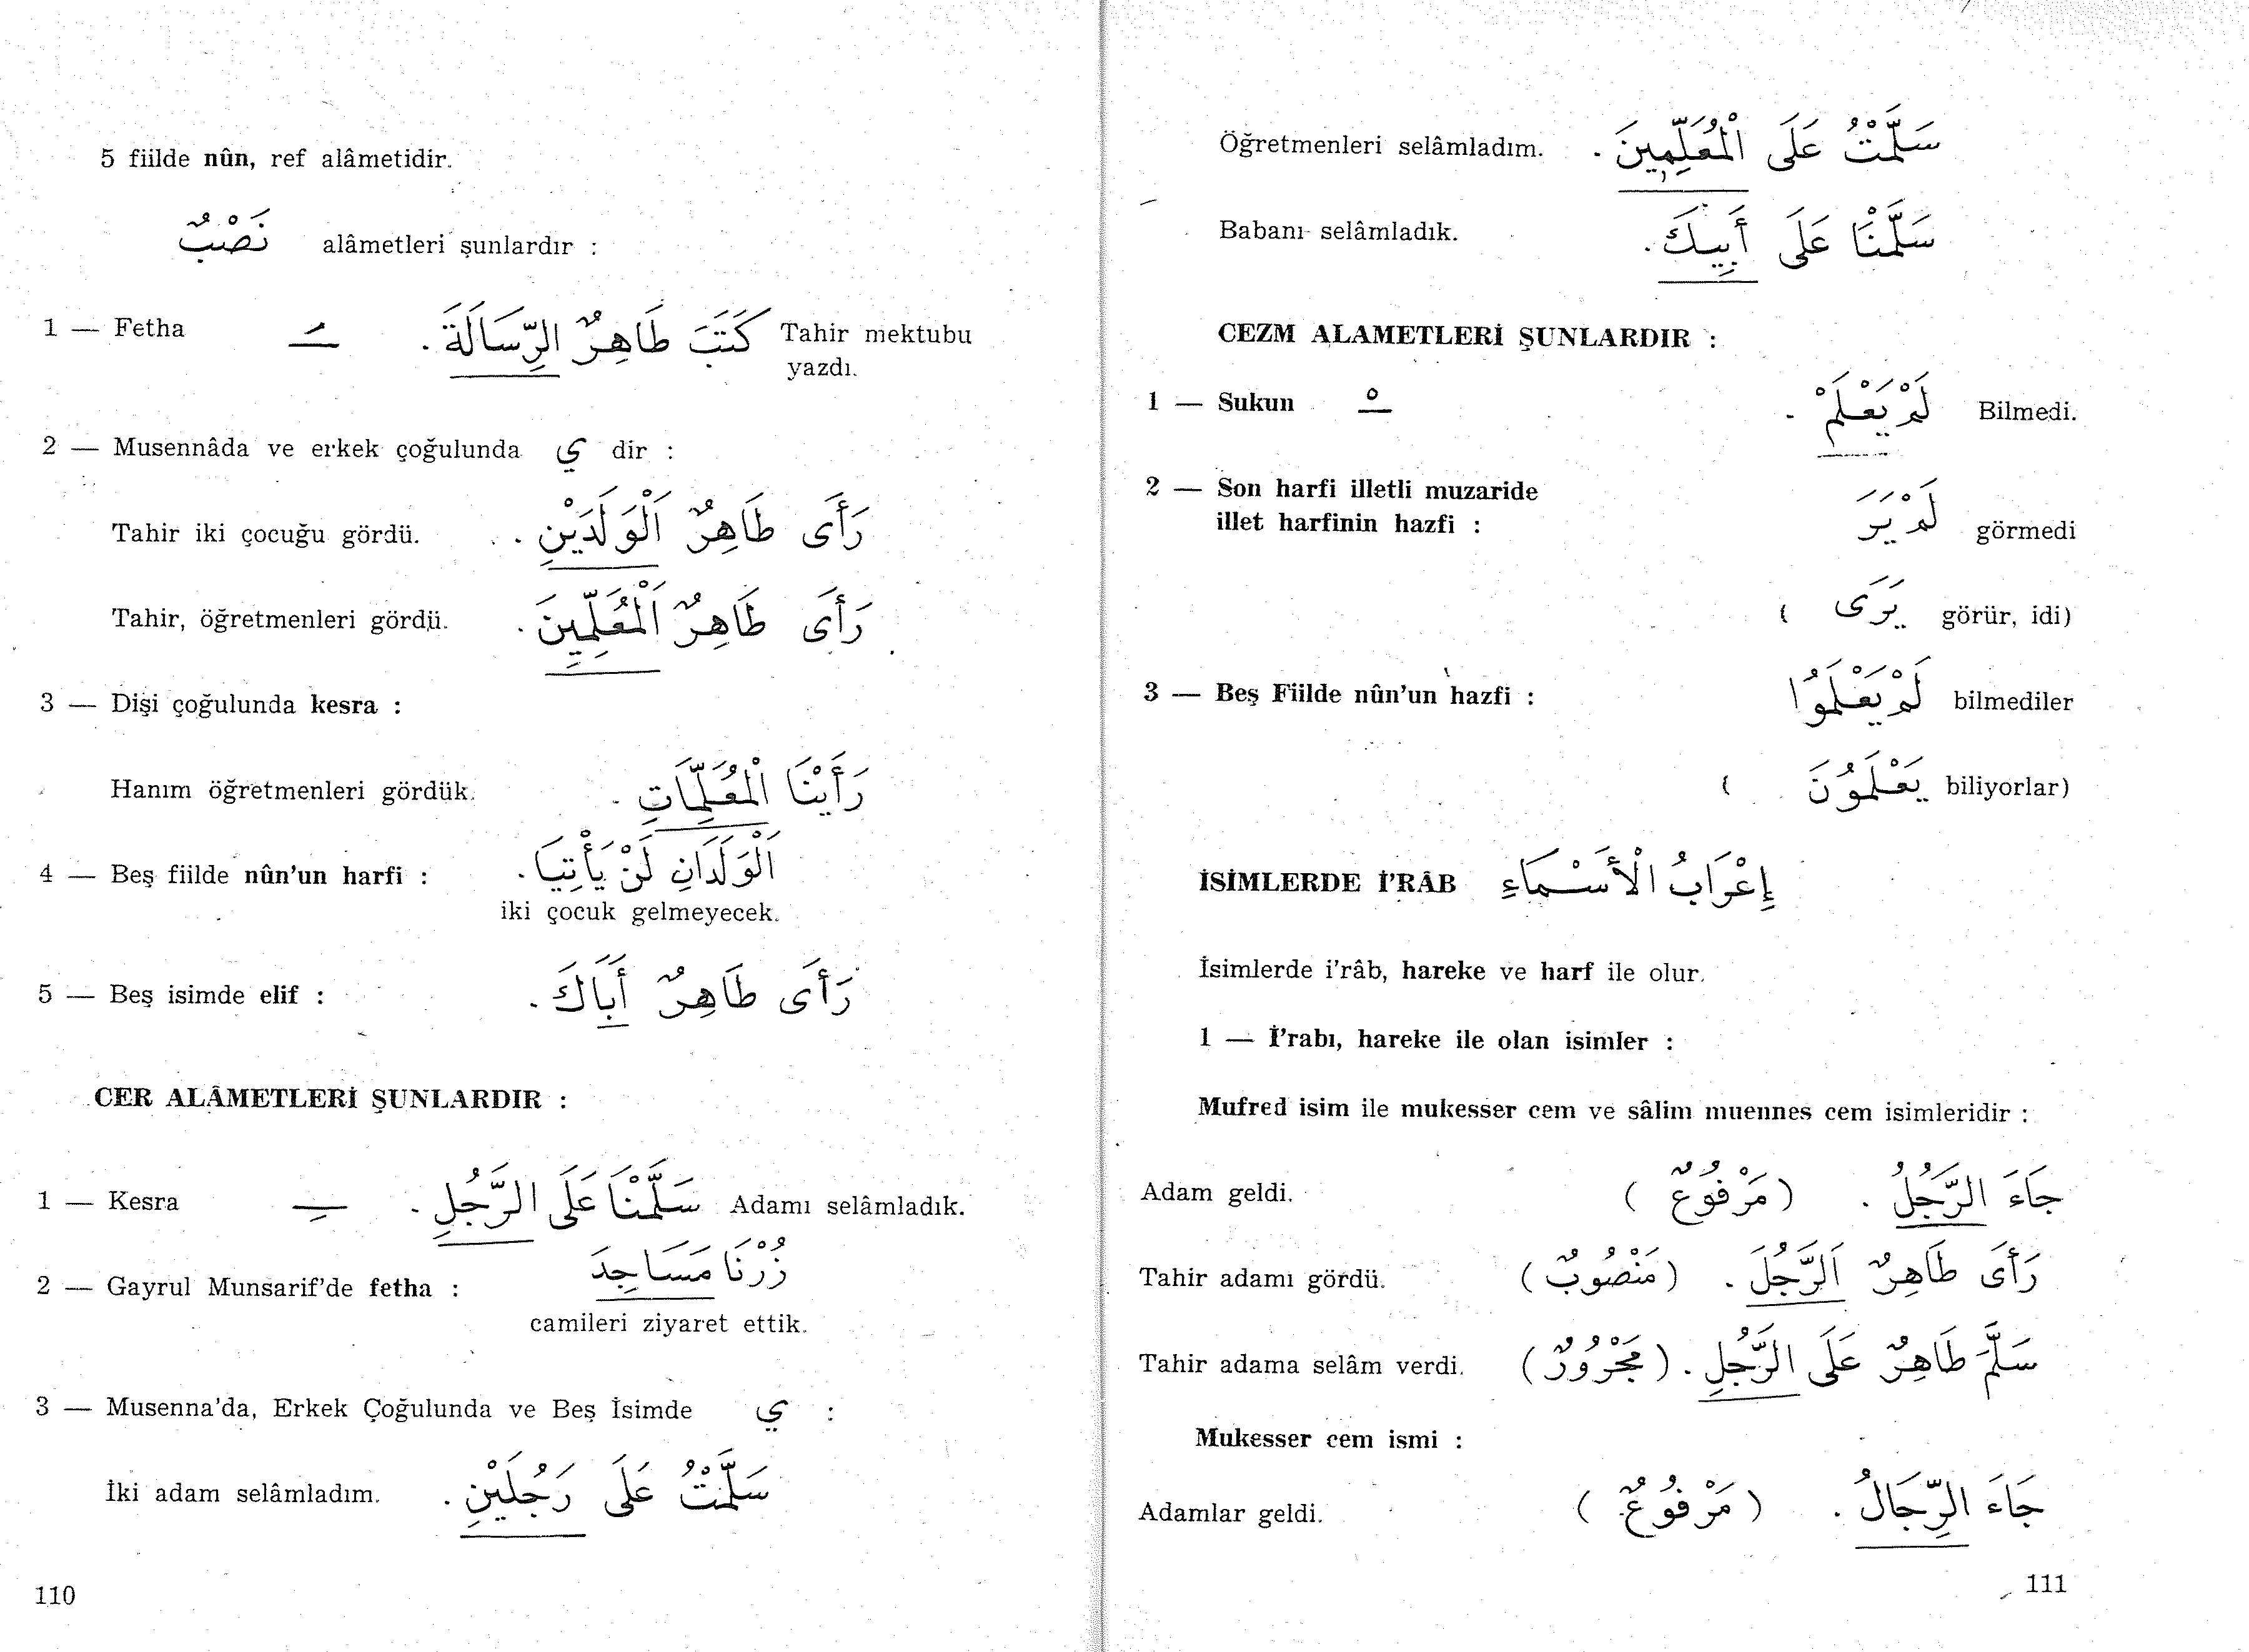 5 fiilde nûn, ref alâmetidir.
نَصْبٌ alâmetleri şunlardır :
1 — Fetha ـَ كَتَبَ طَاهِرٌ الرِّسَالَةَ . Tahir mektubu
yazdı.
2 — Musennâda ve erkek çoğulunda ي dir :
Tahir iki çocuğu gördü. رَأَى طَاهِرٌ اَلْوَلَدَيْنِ .
Tahir, öğretmenleri gördü. رَأَى طَاهِرٌ اَلْمُعَلِّمِينَ .
3 — Dişi çoğulunda kesra :
Hanım öğretmenleri gördük. رَأَيْنَا الْمُعَلِّمَاتِ .
4 — Beş fiilde nûn'un harfi : اَلْوَلَدَانِ لَنْ يَأْتِيَا .
iki çocuk gelmeyecek.
5 — Beş isimde elif : رَأَى طَاهِرٌ أَبَاكَ .
CER ALÂMETLERİ ŞUNLARDIR :
1 — Kesra ـِ سَلَّمْنَا عَلَى الرَّجُلِ . Adamı selâmladık.
2 — Gayrul Munsarif'de fetha : زُرْنَا مَسَاجِدَ
camileri ziyaret ettik.
3 — Musenna'da, Erkek Çoğulunda ve Beş İsimde ي :
İki adam selâmladım. سَلَّمْتُ عَلَى رَجُلَيْنِ .
110
Öğretmenleri selâmladım. سَلَّمْتُ عَلَى الْمُعَلِّمِينَ .
Babanı selâmladık. سَلَّمْنَا عَلَى أَبِيكَ .
CEZM ALAMETLERİ ŞUNLARDIR :
1 — Sukun ـْ لَمْ يَعْلَمْ . Bilmedi.
2 — Son harfi illetli muzaride
illet harfinin hazfi : لَمْ يَرَ görmedi
( يَرَى görür, idi)
3 — Beş Fiilde nûn'un hazfi : لَمْ يَعْلَمُوا bilmediler
( يَعْلَمُونَ biliyorlar)
İSİMLERDE İ'RÂB إِعْرَابُ الْأَسْمَاءِ
İsimlerde i'râb, hareke ve harf ile olur.
1 — İ'rabı, hareke ile olan isimler :
Mufred isim ile mukesser cem ve sâlim muennes cem isimleridir :
Adam geldi. جَاءَ الرَّجُلُ . (مَرْفُوعٌ)
Tahir adamı gördü. رَأَى طَاهِرٌ اَلرَّجُلَ . (مَنْصُوبٌ)
Tahir adama selâm verdi. سَلَّمَ طَاهِرٌ عَلَى الرَّجُلِ . (مَجْرُورٌ)
Mukesser cem ismi :
Adamlar geldi. جَاءَ الرِّجَالُ . (مَرْفُوعٌ)
111